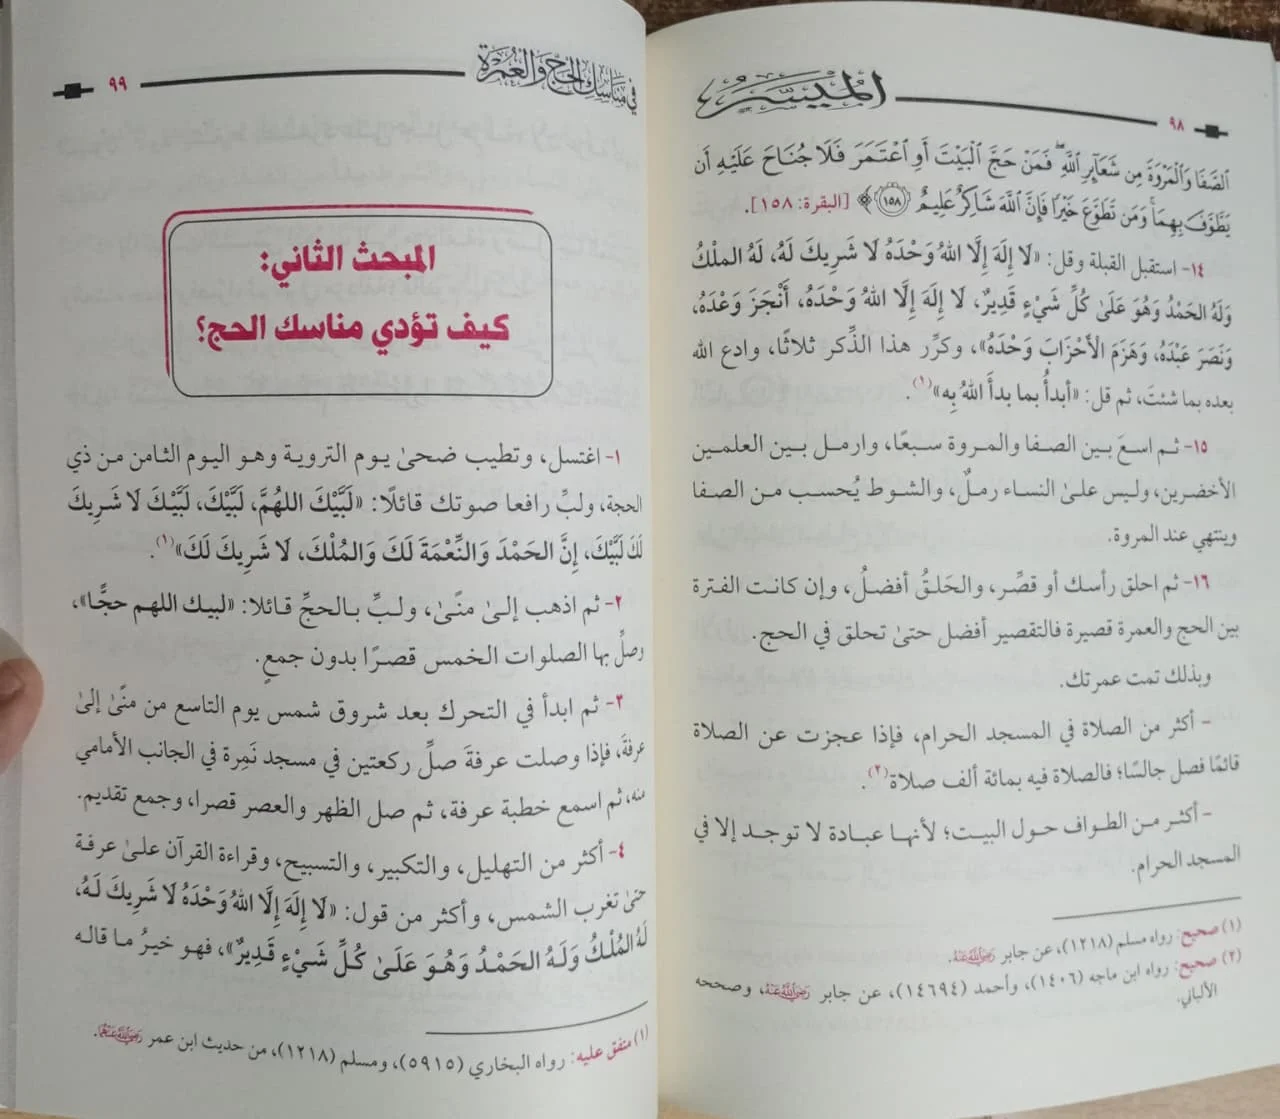 الميسر
٩٨
ٱلصَّفَا وَٱلْمَرْوَةَ مِن شَعَآئِرِ ٱللَّهِ ۖ فَمَنْ حَجَّ ٱلْبَيْتَ أَوِ ٱعْتَمَرَ فَلَا جُنَاحَ عَلَيْهِ أَن
يَطَّوَّفَ بِهِمَا ۚ وَمَن تَطَوَّعَ خَيْرًا فَإِنَّ ٱللَّهَ شَاكِرٌ عَلِيمٌ ﴿١٥٨﴾ [البقرة: ١٥٨].
١٤- استقبل القبلة وقل: «لَا إِلَهَ إِلَّا اللهُ وَحْدَهُ لَا شَرِيكَ لَهُ، لَهُ الملْكُ
وَلَهُ الحَمْدُ وَهُوَ عَلَىٰ كُلِّ شَيْءٍ قَدِيرٌ، لَا إِلَهَ إِلَّا اللهُ وَحْدَهُ، أَنْجَزَ وَعْدَهُ،
وَنَصَرَ عَبْدَهُ، وَهَزَمَ الأَحْزَابَ وَحْدَهُ»، وكرِّر هذا الذِّكر ثلاثًا، وادع الله
بعده بما شئتَ، ثم قل: «أبدأُ بما بدأَ اللهُ بِه»(١).
١٥- ثم اسعَ بين الصفا والمروة سبعًا، وارمل بين العلمين
الأخضرين، وليس علىٰ النساء رملٌ، والشوط يُحسب من الصفا
وينتهي عند المروة.
١٦- ثم احلق رأسك أو قصِّر، والحَلقُ أفضلُ، وإن كانت الفترة
بين الحج والعمرة قصيرة فالتقصير أفضل حتىٰ تحلق في الحج.
وبذلك تمت عمرتك.
- أكثر من الصلاة في المسجد الحرام، فإذا عجزت عن الصلاة
قائمًا فصل جالسًا؛ فالصلاة فيه بمائة ألف صلاة(٢).
- أكثر من الطواف حول البيت؛ لأنها عبادة لا توجد إلا في
المسجد الحرام.
(١) صحيح: رواه مسلم (١٢١٨)، عن جابر رَضِيَاللَّهُعَنْهُ.
(٢) صحيح: رواه ابن ماجه (١٤٠٦)، وأحمد (١٤٦٩٤)، عن جابر رَضِيَاللَّهُعَنْهُ، وصححه
الألباني.
في مناسك الحج والعمرة
٩٩
المبحث الثاني:
كيف تؤدي مناسك الحج؟
١- اغتسل، وتطيب ضحىٰ يوم التروية وهو اليوم الثامن من ذي
الحجة، ولبِّ رافعا صوتك قائلًا: «لَبَّيْكَ اللهُمَّ، لَبَّيْكَ، لَبَّيْكَ لَا شَرِيكَ
لَكَ لَبَّيْكَ، إِنَّ الحَمْدَ وَالنِّعْمَةَ لَكَ وَالمُلْكَ، لَا شَرِيكَ لَكَ»(١).
٢- ثم اذهب إلىٰ منًىٰ، ولبِّ بالحجِّ قائلا: «لبيك اللهم حجًّا»،
وصلِّ بها الصلوات الخمس قصرًا بدون جمعٍ.
٣- ثم ابدأ في التحرك بعد شروق شمس يوم التاسع من منًىٰ إلىٰ
عرفةَ، فإذا وصلت عرفةَ صلِّ ركعتين في مسجد نَمِرة في الجانب الأمامي
منه، ثم اسمع خطبة عرفة، ثم صل الظهر والعصر قصرا، وجمع تقديم.
٤- أكثر من التهليل، والتكبير، والتسبيح، وقراءة القرآن علىٰ عرفة
حتىٰ تغرب الشمس، وأكثر من قول: «لَا إِلَهَ إِلَّا اللهُ وَحْدَهُ لَا شَرِيكَ لَهُ،
لَهُ المُلْكُ وَلَهُ الحَمْدُ وَهُوَ عَلَىٰ كُلِّ شَيْءٍ قَدِيرٌ»، فهو خيرُ ما قاله
(١) متفق عليه: رواه البخاري (٥٩١٥)، ومسلم (١٢١٨)، من حديث ابن عمر رَضِيَاللَّهُعَنْهُمَا.